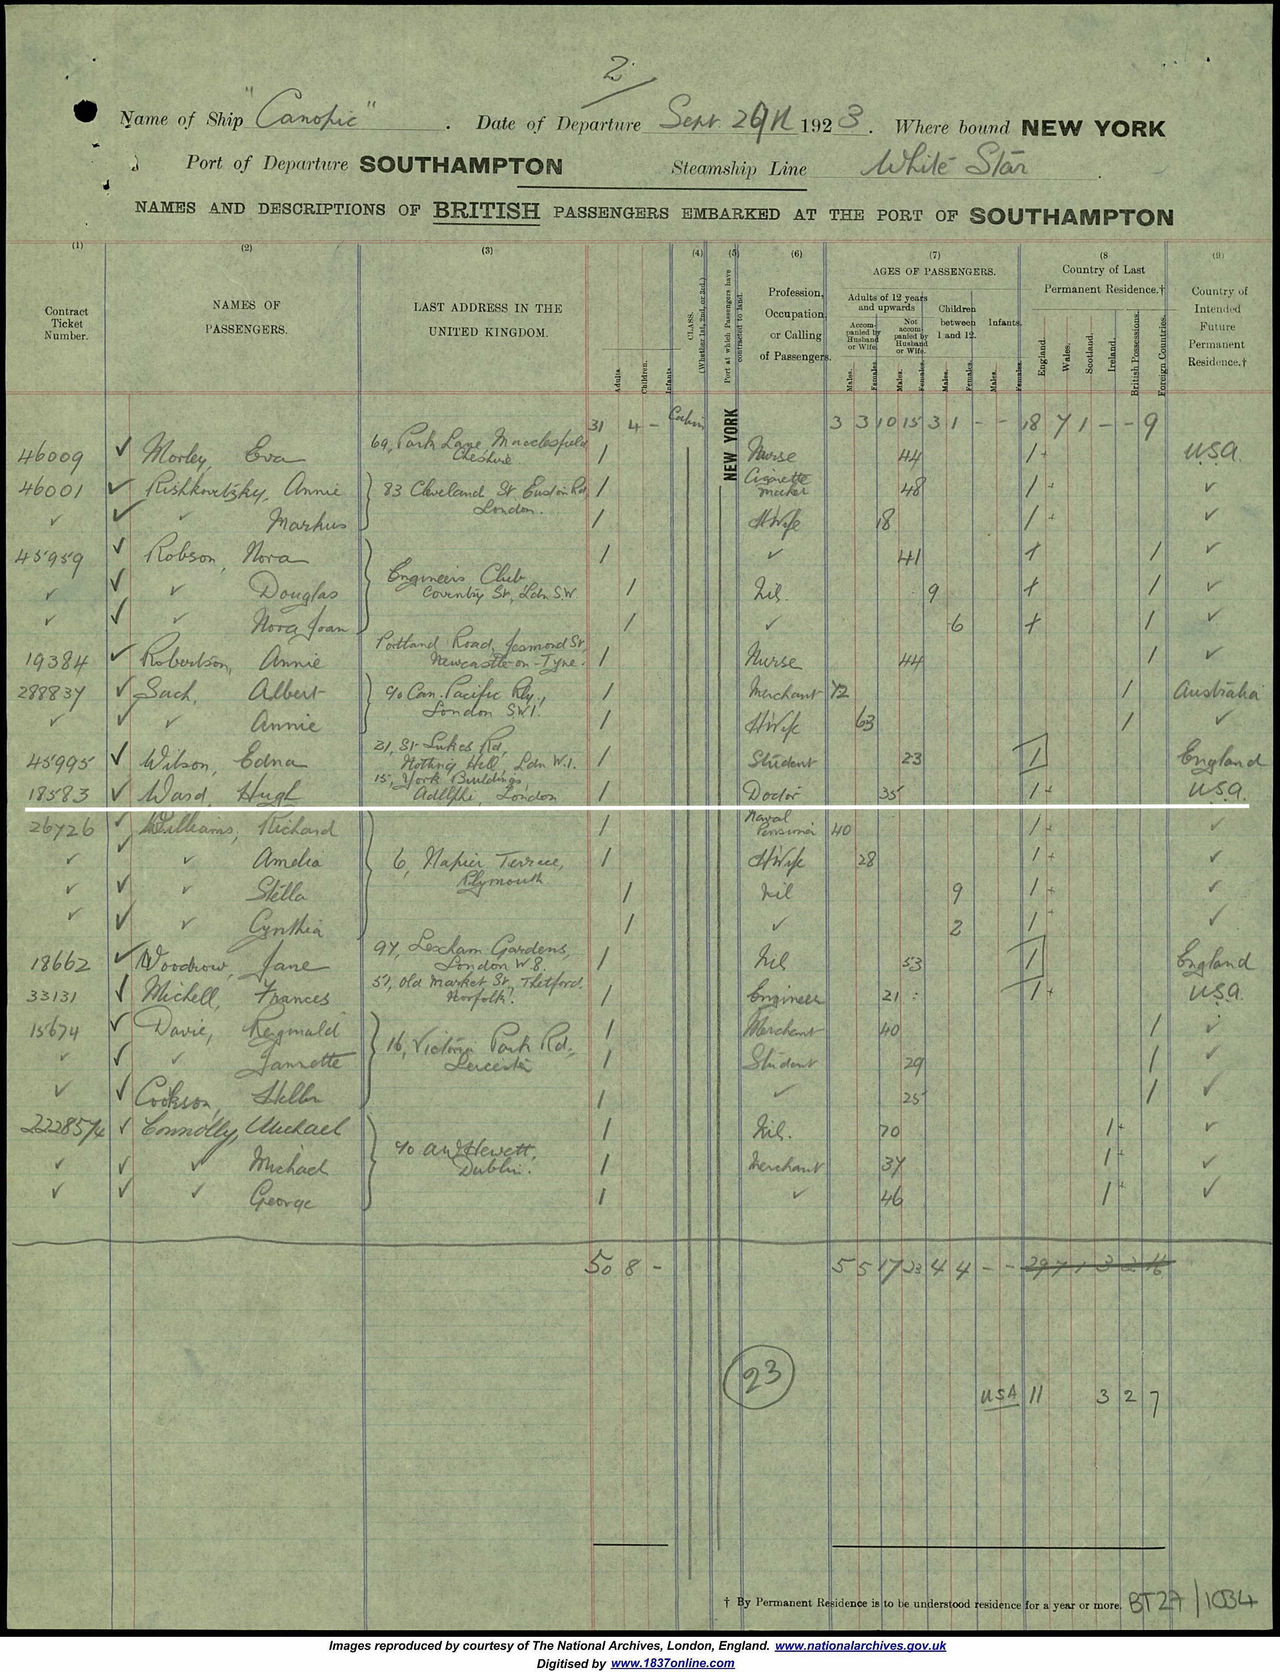 2
Name of Ship "Canopic" . Date of Departure Sept 1923. Where bound NEW YORK
Port of Departure SOUTHAMPTON Steamship Line White Star
NAMES AND DESCRIPTIONS OF BRITISH PASSENGERS EMBARKED AT THE PORT OF SOUTHAMPTON
(1) (2) (3) (4) (5) (6) (7) (8 (9)
Contract Ticket Number. NAMES OF PASSENGERS. LAST ADDRESS IN THE UNITED KINGDOM. Adults. Children. Infants. CLASS. (Whether 1st, 2nd, or 3rd.) Port at which Passengers have contracted to land. Profession, Occupation, or Calling of Passengers. AGES OF PASSENGERS. Country of Last Permanent Residence.† Country of Intended Future Permanent Residence.†
Adults of 12 years and upwards Children between 1 and 12. Infants.
Accompanied by Husband or Wife. Not accompanied by Husband or Wife.
Males. Females. Males. Females. Males. Females. Males. Females. England. Wales. Scotland. Ireland. British Possessions. Foreign Countries.
31 4 - Cabin NEW YORK 3 3 10 15 3 1 - - 18 7 1 - - 9
46009 ✓ Morley, Eva 69, Park Lane, Macclesfield Cheshire 1 Nurse 44 1+ U.S.A.
46001 ✓ Rishkovitzky, Annie } 83 Cleveland St. Euston Rd London. 1 Cigarette maker 48 1+ ✓
✓ ✓ ✓ Markus 1 HWife 18 1+ ✓
45959 ✓ Robson, Nora } Engineers Club Coventry St, Ldn S.W. 1 ✓ 41 + 1 ✓
✓ ✓ ✓ Douglas 1 Nil. 9 + 1 ✓
✓ ✓ ✓ Nora Joan 1 ✓ 6 + 1 ✓
19384 ✓ Robertson, Annie Portland Road, Jesmond St, Newcastle-on-Tyne. 1 Nurse 44 1 ✓
288837 ✓ Sach, Albert } c/o Can. Pacific Rly., London SW1. 1 Merchant 72 1 Australia
✓ ✓ ✓ Annie 1 HWife 63 1 ✓
45995 ✓ Wilson, Edna 21, St Lukes Rd, Notting Hill, Ldn W.1. 1 Student 23 1 England
18583 ✓ Ward, Hugh 15, York Buildings, Adelphi, London 1 Doctor 35 1+ U.S.A.
26726 ✓ Williams, Richard } 6, Napier Terrace, Plymouth 1 Naval Pensioner 40 1+ ✓
✓ ✓ ✓ Amelia 1 HWife 28 1+ ✓
✓ ✓ ✓ Stella 1 Nil 9 1+ ✓
✓ ✓ ✓ Cynthia 1 ✓ 2 1+ ✓
18662 ✓ Woodrow, Jane 97, Lexham Gardens, London W8. 1 Nil 53 1 England
33131 ✓ Michell, Frances 51, Old Market St, Thetford. Norfolk. 1 Engineer 21 1+ U.S.A.
15674 ✓ Davie, Reginald } 16, Victoria Park Rd., Leicester 1 Merchant 40 1 ✓
✓ ✓ ✓ Jannette 1 Student 29 1 ✓
✓ ✓ Cookson, 1 ✓ 25 1 ✓
✓ Connolly, Michael } c/o Hewett, Dublin. 1 Nil. 70 1+ ✓
✓ ✓ ✓ Michael 1 Merchant 37 1+ ✓
✓ ✓ ✓ George 1 ✓ 46 1+ ✓
50 8 - 5 5 17 23 4 4 - - 29 7 1 3 2 16
23
USA 11 3 2 7
† By Permanent Residence is to be understood residence for a year or more. BT27/1034
Images reproduced by courtesy of The National Archives, London, England. www.nationalarchives.gov.uk
Digitised by www.1837online.com